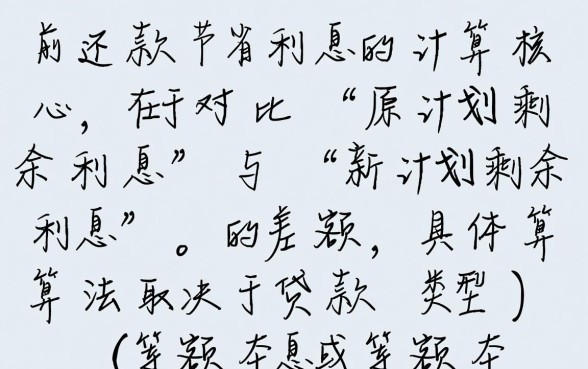 前还款节省利息的计算核
心，在于对比“原计划剩
余利息”与“新计划剩余
利息”。的差额，具体算
算法取决于贷款 类型）
（等额本息或等额本